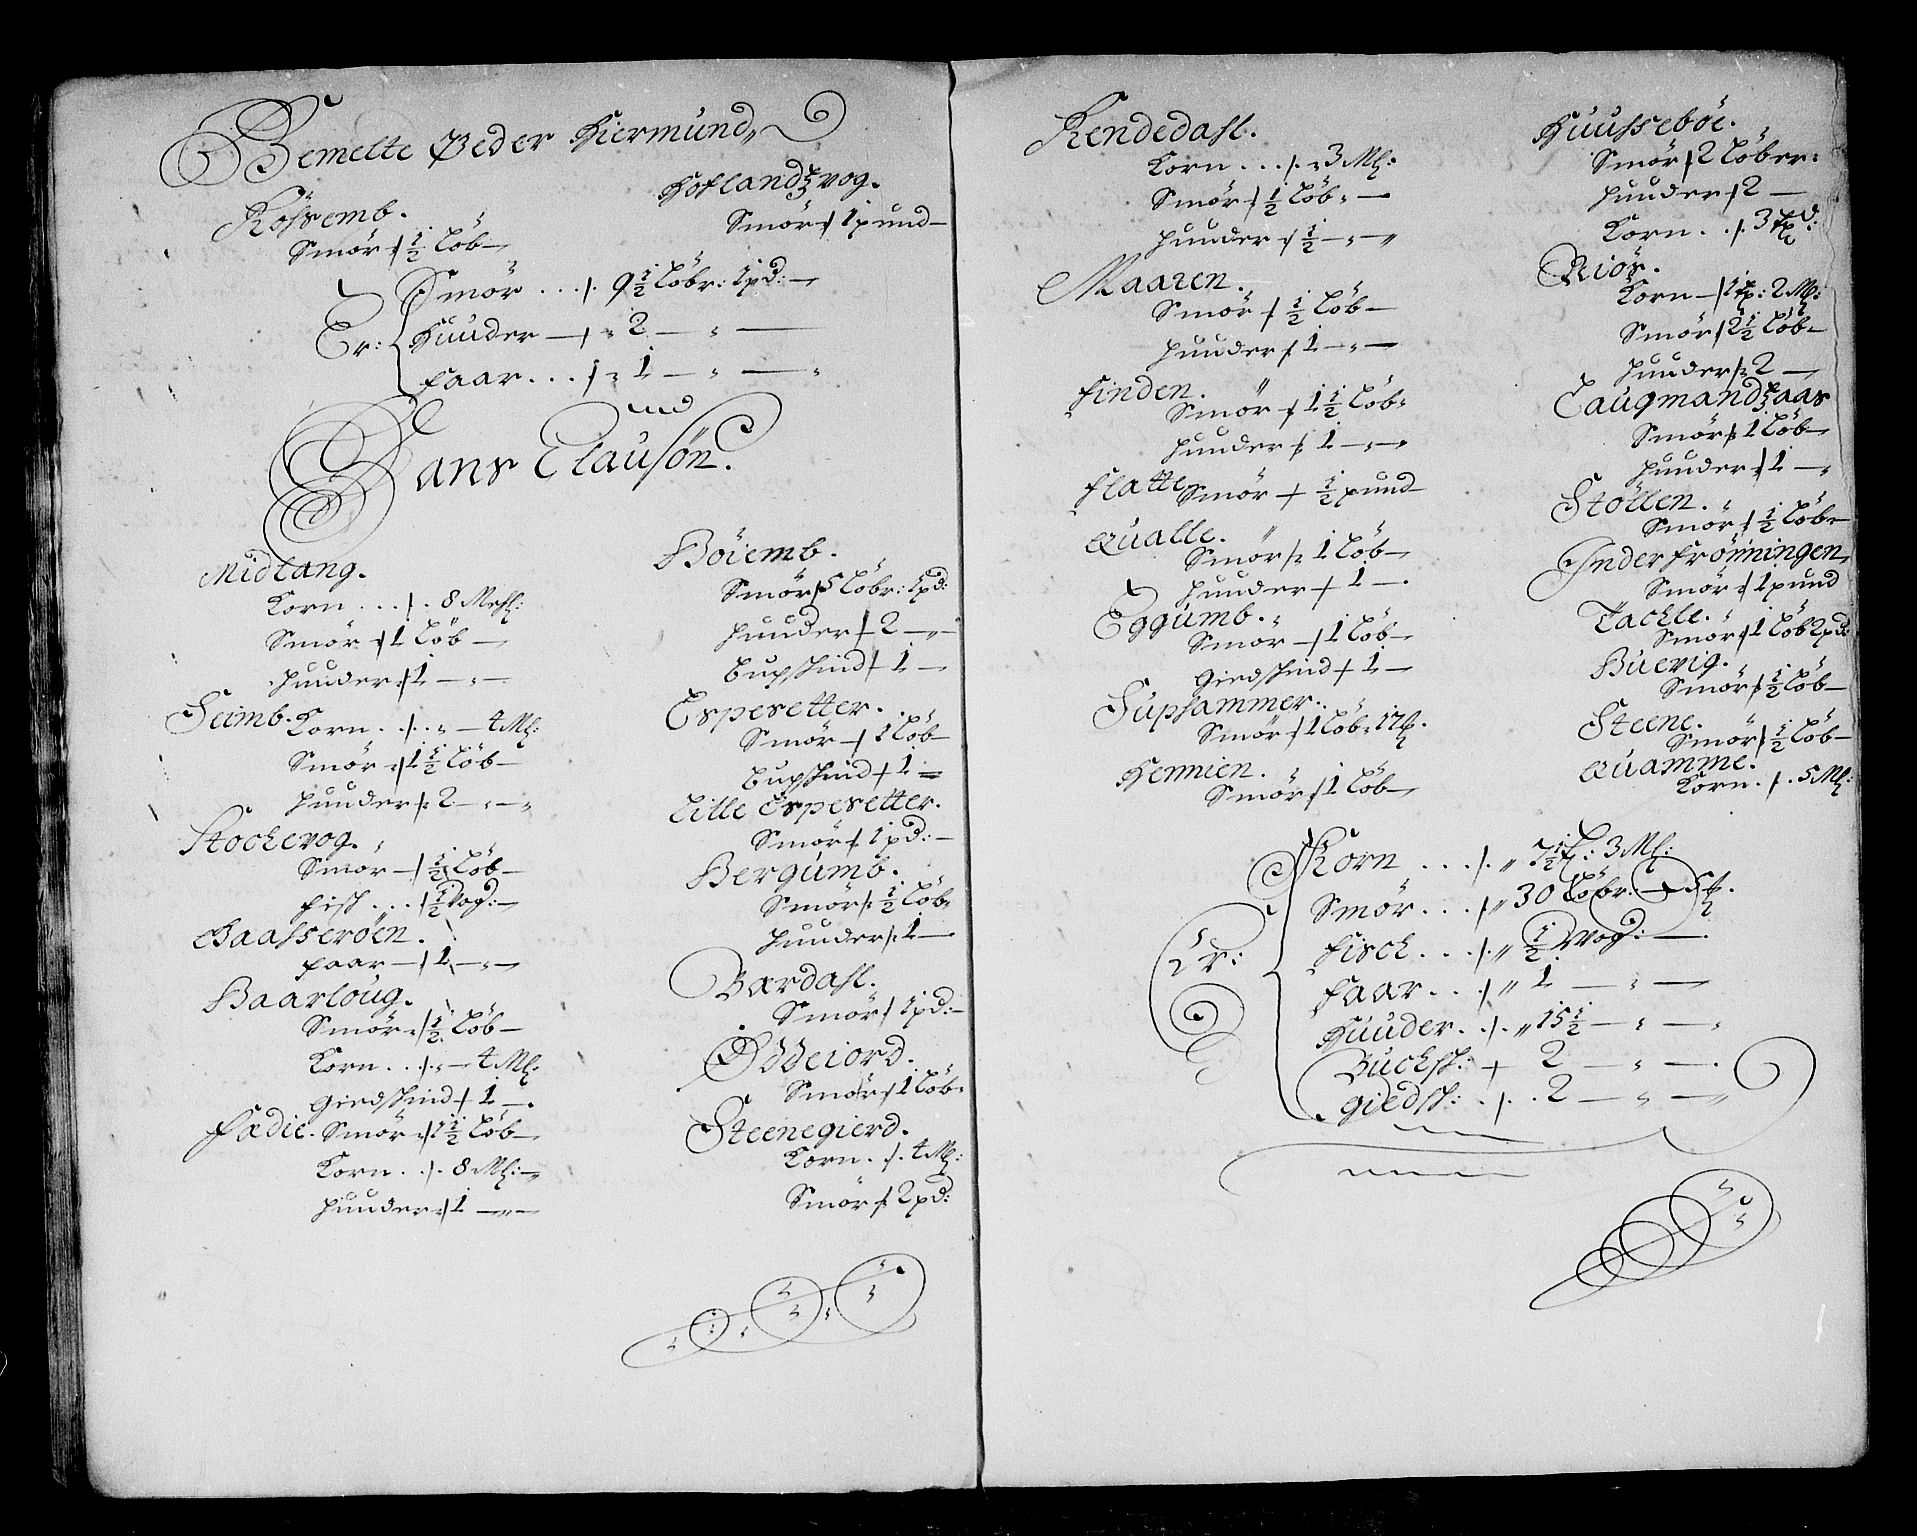 Bemelte Peder Hiermund„
Rössemb.
Smör ⁒ ½ Löb —
Hoflandzvog.
Smör ⁒ 1 pund —
Er:
Smör ... ⁒ 9½ Löbr: 1 pd: —
Huuder — ⁒ 2 — „ —
Faar ... ⁒ „ 1 — „ — „
Hans Clausön.
Midtang.
Korn ... ⁒ 8 Mehl:
Smör ⁒ 1 Löb —
Huuder ⁒ 1 — „ —
Seimb. Korn ... „ — 4 Ml:
Smör ⁒ 1½ Löb —
Huuder ⁒ 2 — „ — „
Stochevog.
Smör — ⁒ ½ Löb —
Fisk ... ⁒ ½ Vog: —
Gaasserøen.
Faar — ⁒ 1 — „ —
Baarloug.
Smör ⁒ ½ Löb —
Korn ... „ — 4 Ml:
Giedskind ⁒ 1 —
Fadie. Smör ⁒ 1½ Löb —
Korn ... 8 Ml: —
Huuder ⁒ 1 — „ —
Böiemb.
Smör ⁒ 5 Löbr: 1 pd:
Huuder ⁒ 2 — „ —
Bupskind ⁒ 1 —
Espesetter.
Smör — ⁒ 1 Löb —
Bupskind ⁒ 1 —
Litle Espesetter.
Smör ⁒ 1 pd: —
Bergumb.
Smör ⁒ ½ Löb
Huuder ⁒ 1 —
Bardahl.
Smör ⁒ 1 pd: —
Oddeiord.
Smör ⁒ 1 Löb
Steenegierd.
Korn ... 4 Ml:
Smör ⁒ 2 pd:
Rendedahl.
Korn ... ⁒ 3 Ml:
Smör ⁒ ½ Löb —
Huuder ⁒ ½ — „ — „
Maaren.
Smör ⁒ ½ Löb —
Huuder ⁒ 1 — „ —
Finden.
Smör ⁒ 1½ Löb
Huuder ⁒ 1 — „ —
Flatte Smör ⁒ ½ pund —
Qualle.
Smör ⁒ 1 Löb —
Huuder ⁒ 1 —
Eggumb.
Smör — ⁒ 1 Löb —
Giedskind ⁒ 1 —
Suphammer.
Smör ⁒ 1 Löb
Hennien.
Smör ⁒ 1 Löb —
Huussebøe.
Smör ⁒ 2 Löber:
Huuder ⁒ 2 —
Korn ... ⁒ 3
Riör.
Korn — ⁒ 1 2 Ml:
Smör ⁒ 2½ Löb —
Huuder ⁒ 2 —
Laugmandzaas
Smör ⁒ 1 Löb —
Huuder ⁒ 1 — „
Stöllen.
Smör ⁒ ½ Löb —
Inderfrönningen
Smör ⁒ 1 pund
Tachle.
Smör ⁒ 1 Löb 2 pd:
Buevig.
Smör ⁒ ½ Löb —
Steene.
Smör ⁒ ½ Löb —
Quamme.
Korn ... ⁒ 5 Ml:
Er:
Korn ... ⁒ „ 7½ 3 Ml:
Smör ... ⁒ „ 30 Löbr:
Fisch ... ⁒ „ ½ Wog: —
Faar ... ⁒ „ 1 — „ —
Huuder ... ⁒ „ 15½ — „ — „
Bucksk: ⁒ 2 — „ —
Giedsk: ⁒ 2 — „ — „